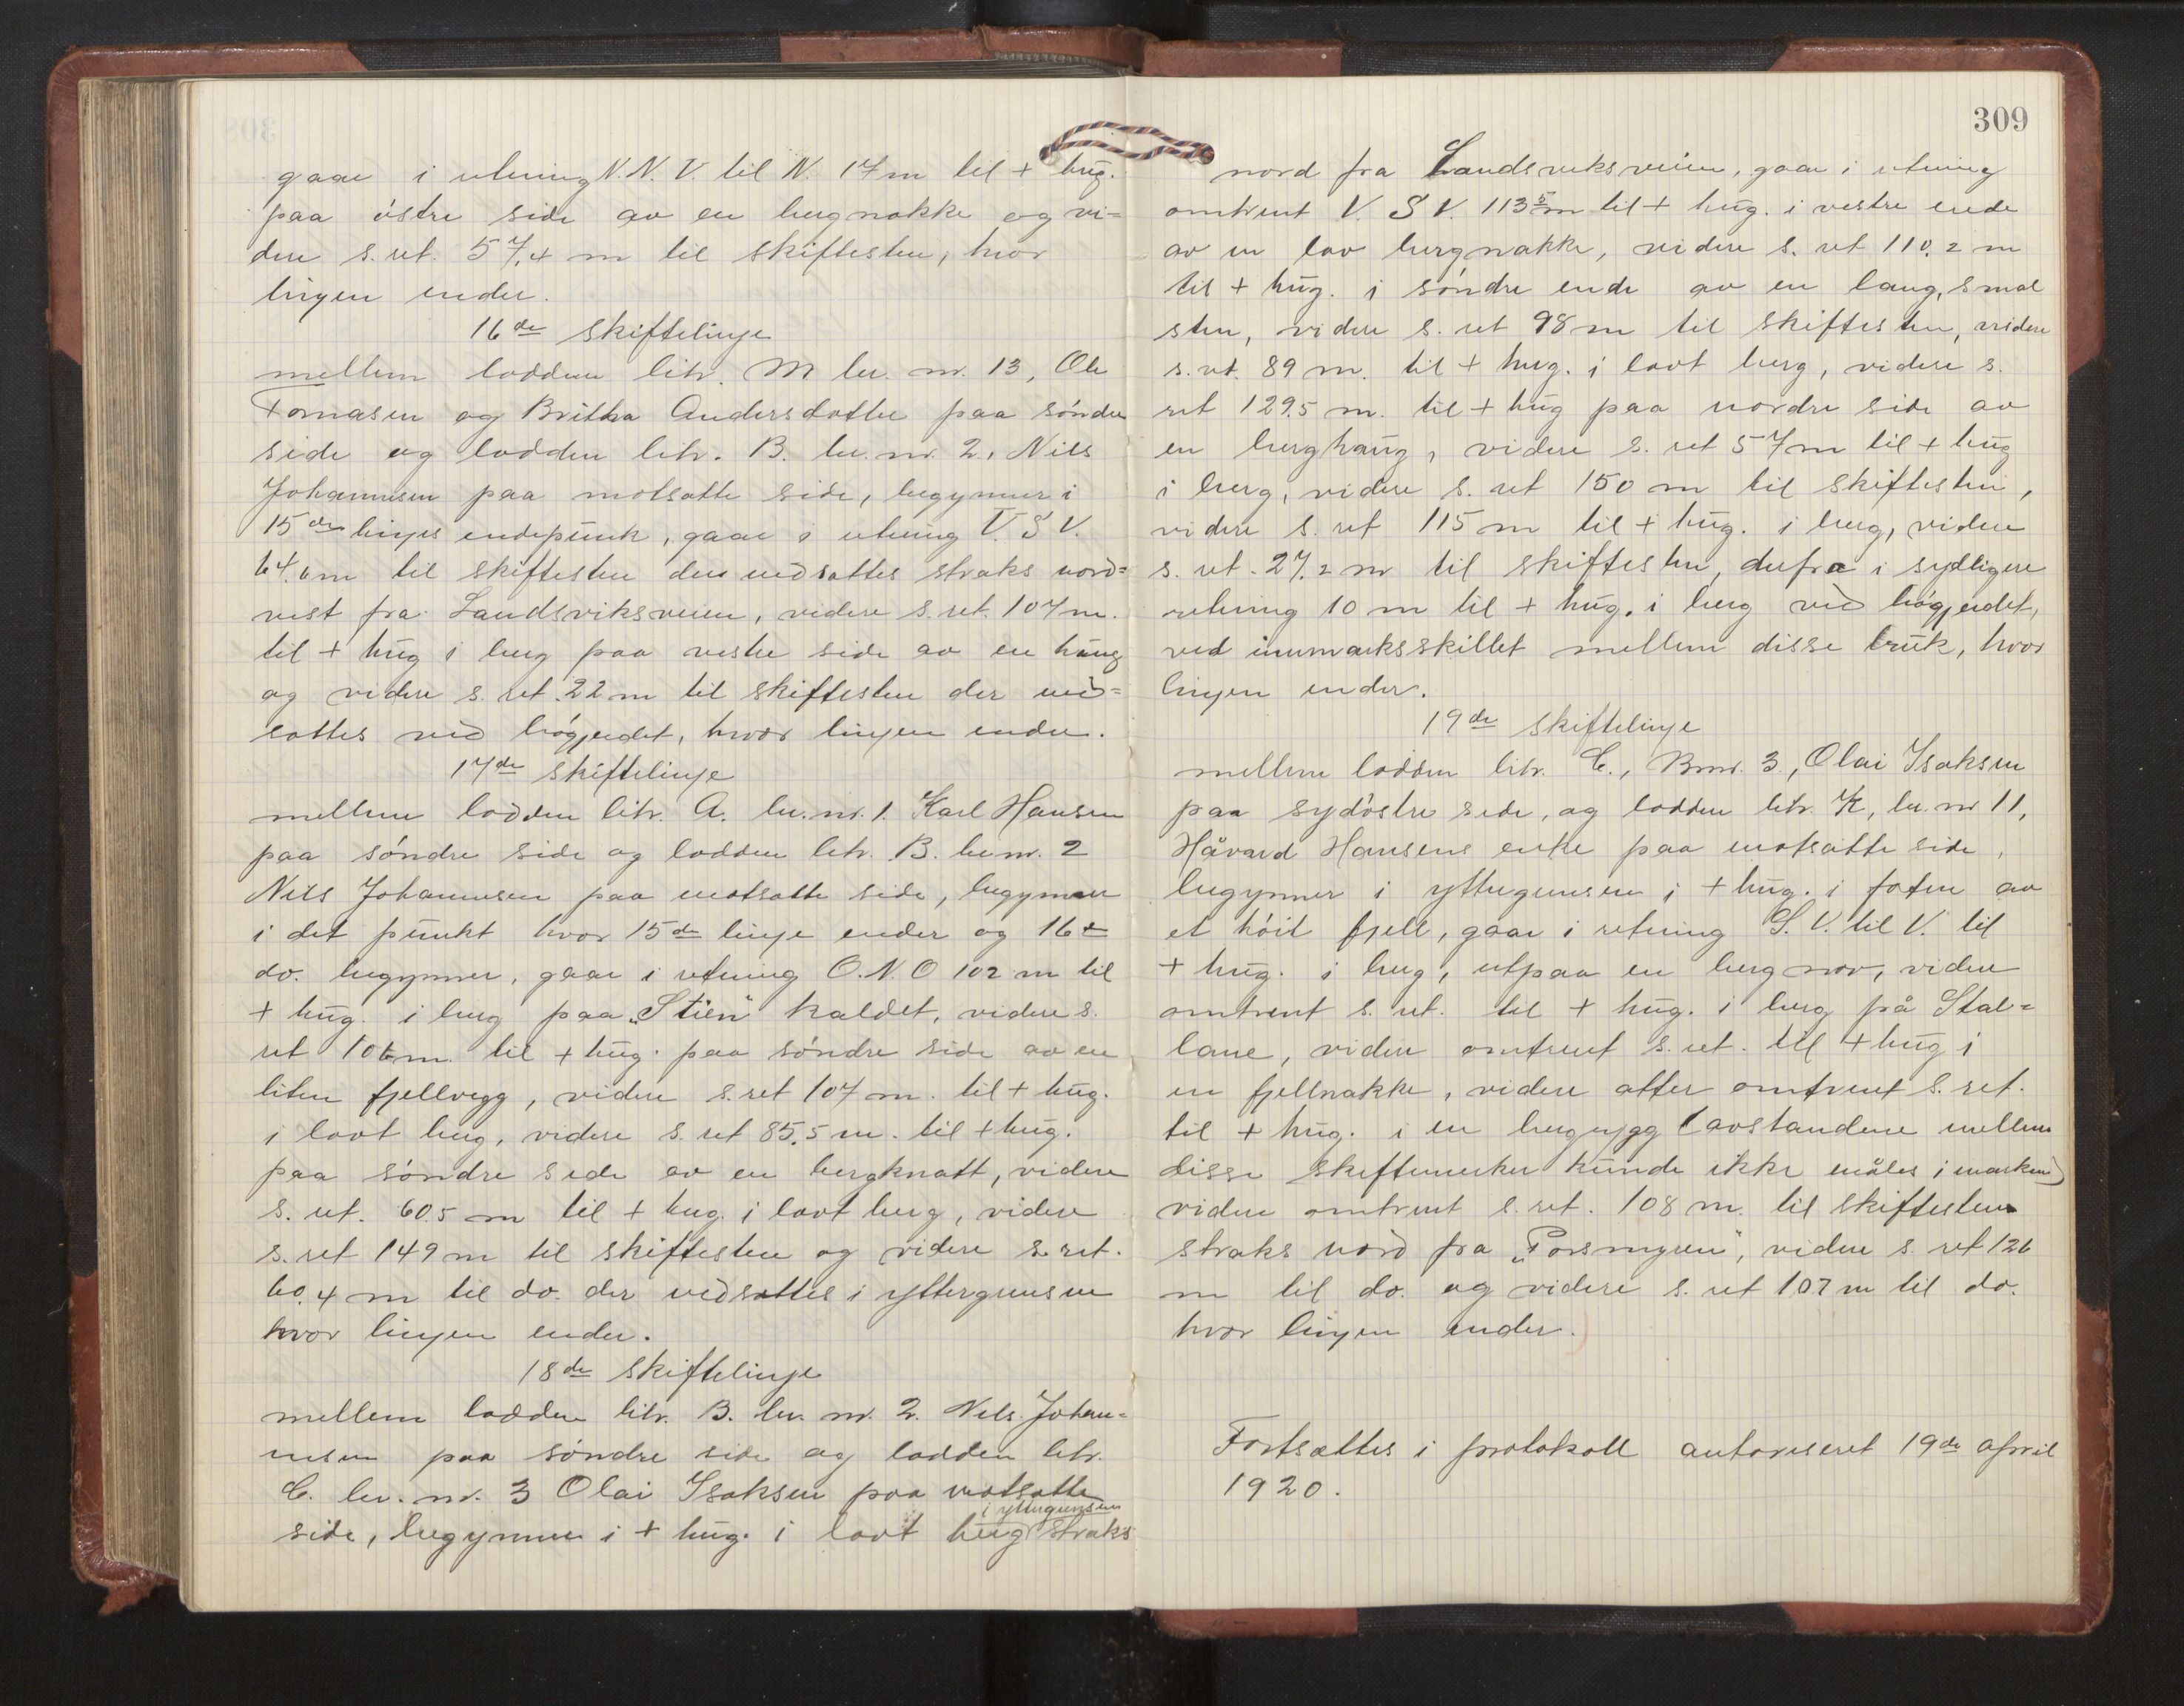 gaar i retning N.N.V. til N. 17 m til + hug.
paa østre side av en bergnakke og vi=
dere s. ret. 57,4 m til skiftesten, hvor
linjen ender.
16de skiftelinje
mellem lodden litr. M br. nr. 13, Ole
Tomasen og Britha Andersdatter paa søndre
side og lodden litr. B. br. nr. 2, Nils
Johannesen paa motsatte side, begynner i
15de linjes endepunk, gaar i retning V. S V.
64,6 m til skiftesten der nedsattes straks nord=
vest fra Landsviksveien, videre s. ret. 107 m.
til + hug i berg paa vestre side av en haug
og videre s. ret 22 m til skiftesten der ned=
sattes ved bøgjerdet, hvor linjen ender.
17de skiftelinje
mellem lodden litr. A. br. nr. 1. Karl Hansen
paa søndre side og lodden litr. B. br. nr. 2
Nils Johannesen paa motsatte side, begynner
i det punkt hvor 15de linje ender og 16de
do. begynner, gaar i retning O.N.O 102 m til
+ hug. i berg paa „Stien" kaldet, videre s.
ret 106 m. til + hug. paa søndre side av en
liten fjellvegg, videre s. ret 107 m. til + hug.
i lavt berg, videre s. ret 85,5 m. til + hug.
paa søndre side av en bergknatt, videre
s. ret. 60,5 m til + hug. i lavt berg, videre
s. ret 149 m til skiftesten og videre s. ret.
60,4 m til do. der nedsattes i yttergrensen
hvor linjen ender.
18de skiftelinje
mellem lodden litr. B. br. nr. 2. Nils Johan=
nesen paa søndre side og lodden litr.
C. br. nr. 3 Olai Isaksen paa motsatte
i yttergrensen
side, begynner i + hug. i lavt berg straks
309
nord fra Landsviksveien, gaar i retning
omtrent V. S V. 113,5 m til + hug. i vestre ende
av en lav bergnakke, videre s. ret 110,2 m
til + hug. i søndre ende av en lang, smal
sten, videre s. ret 98 m til skiftesten, videre
s. ret. 89 m. til + hug. i lavt berg, videre s.
ret 129,5 m. til + hug paa nordre side av
en berghaug, videre s. ret 57 m til + hug
i berg, videre s. ret 150 m til skiftesten,
videre s. ret 115 m til + hug. i berg, videre
s. ret. 27,2 m til skiftesten, derfra i sydligere
retning 10 m til + hug. i berg ved bøgjerdet,
ved innmarksskillet mellem disse bruk, hvor
linjen ender.
19de skiftelinje
mellem lodden litr. C., Bnr. 3., Olai Isaksen
paa sydøstre side, og lodden litr. K, br. nr 11,
Håvard Hansens enke paa motsatte side,
begynner i yttergrensen i + hug. i foten av
et høit fjell, gaar i retning S. V. til V. til
+ hug. i berg, utpaa en bergnov, videre
omtrent s. ret. til + hug. i berg på Stal=
lane, videre omtrent s. ret. til + hug i
en fjellnakke, videre atter omtrent s. ret.
til + hug. i en bergrygg (avstandene mellem
disse skiftemerker kunde ikke måles i marken)
videre omtrent s. ret. 108 m. til skiftesten
straks nord fra „Porsmyren", videre s. ret 126
m til do. og videre s. ret 107 m til do.
hvor linjen ender.
Fortsættes i protokoll autoriseret 19de april
1920.